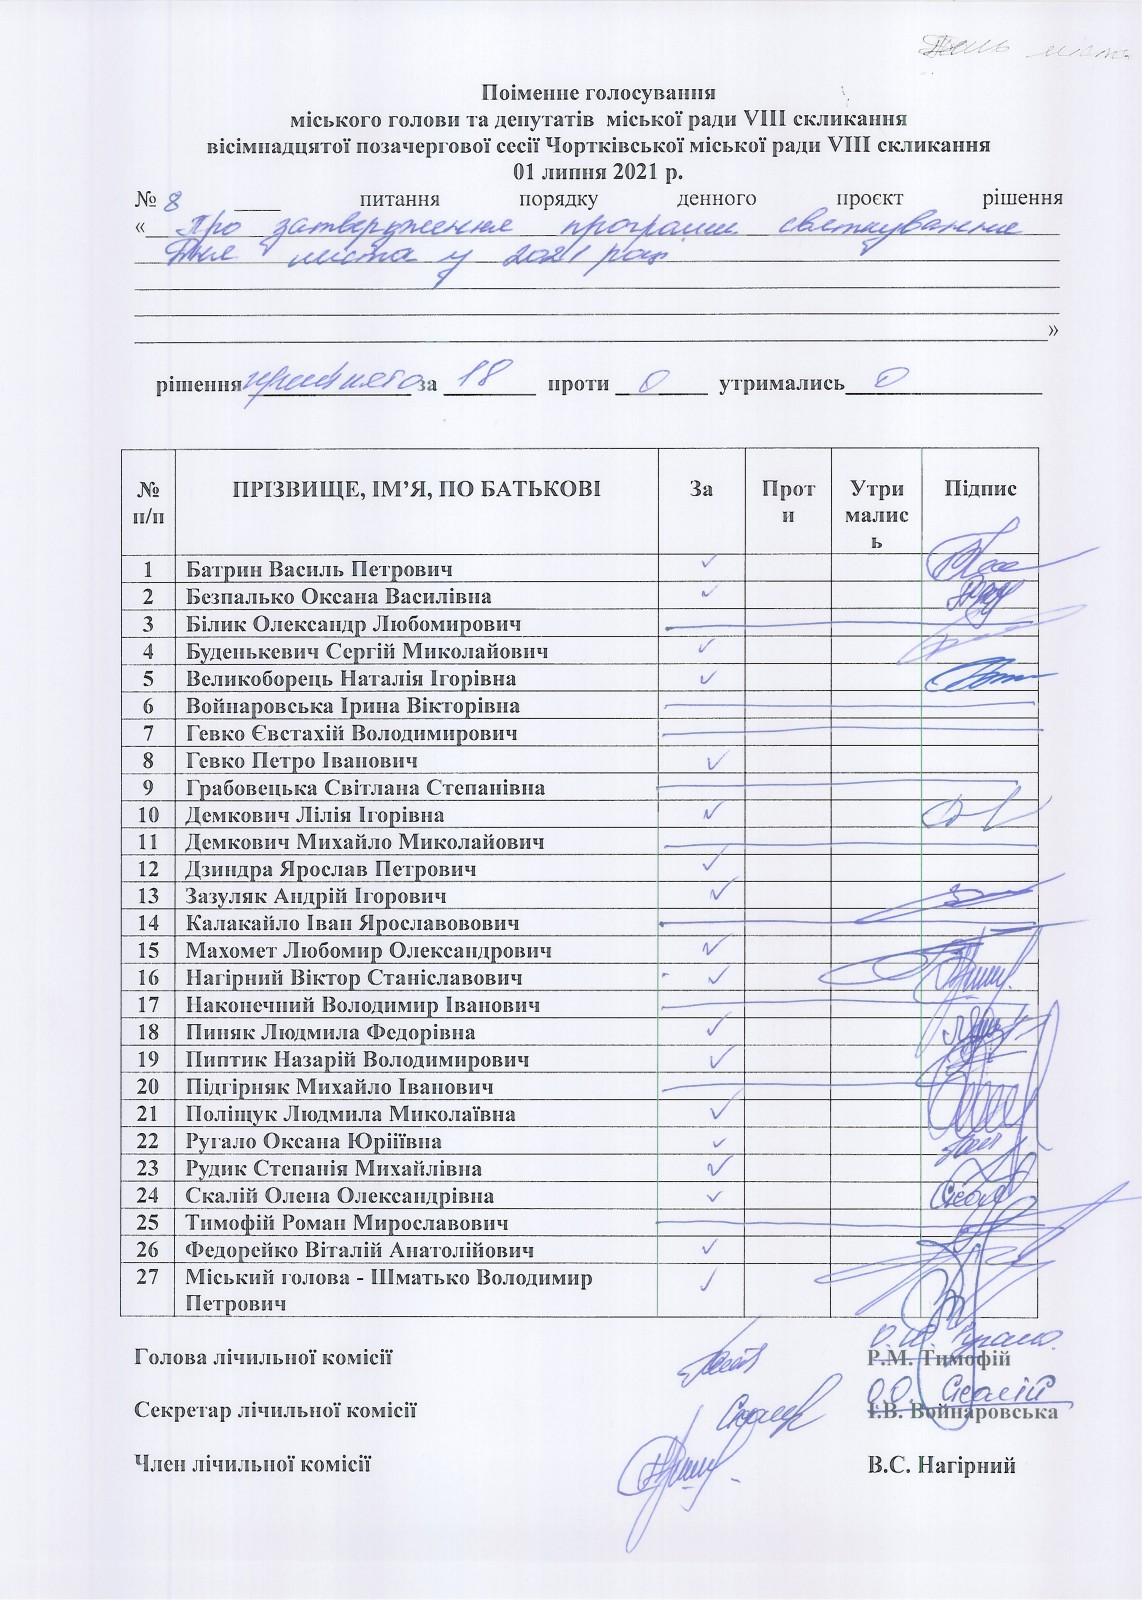 День міста
Поіменне голосування
міського голови та депутатів міської ради VIII скликання
вісімнадцятої позачергової сесії Чортківської міської ради VIII скликання
01 липня 2021 р.
№ 8 ____ питання порядку денного проєкт рішення
« Про затвердження програми святкування
Дня міста у 2021 році
»
рішення прийнято за 18 проти 0 утримались 0
№ п/п ПРІЗВИЩЕ, ІМ’Я, ПО БАТЬКОВІ За Проти Утрималиcь Підпис
1 Батрин Василь Петрович ✓
2 Безпалько Оксана Василівна ✓
3 Білик Олександр Любомирович
4 Буденькевич Сергій Миколайович ✓
5 Великоборець Наталія Ігорівна ✓
6 Войнаровська Ірина Вікторівна
7 Гевко Євстахій Володимирович
8 Гевко Петро Іванович ✓
9 Грабовецька Світлана Степанівна
10 Демкович Лілія Ігорівна ✓
11 Демкович Михайло Миколайович
12 Дзиндра Ярослав Петрович ✓
13 Зазуляк Андрій Ігорович ✓
14 Калакайло Іван Ярославовович
15 Махомет Любомир Олександрович ✓
16 Нагірний Віктор Станіславович ✓
17 Наконечний Володимир Іванович
18 Пиняк Людмила Федорівна ✓
19 Пиптик Назарій Володимирович ✓
20 Підгірняк Михайло Іванович
21 Поліщук Людмила Миколаївна ✓
22 Ругало Оксана Юріїївна ✓
23 Рудик Степанія Михайлівна ✓
24 Скалій Олена Олександрівна ✓
25 Тимофій Роман Мирославович
26 Федорейко Віталій Анатолійович ✓
27 Міський голова - Шматько Володимир ✓
Петрович
О.Ю. Ругало
Голова лічильної комісії Р.М. Тимофій
О.О. Скалій
Секретар лічильної комісії І.В. Войнаровська
Член лічильної комісії В.С. Нагірний